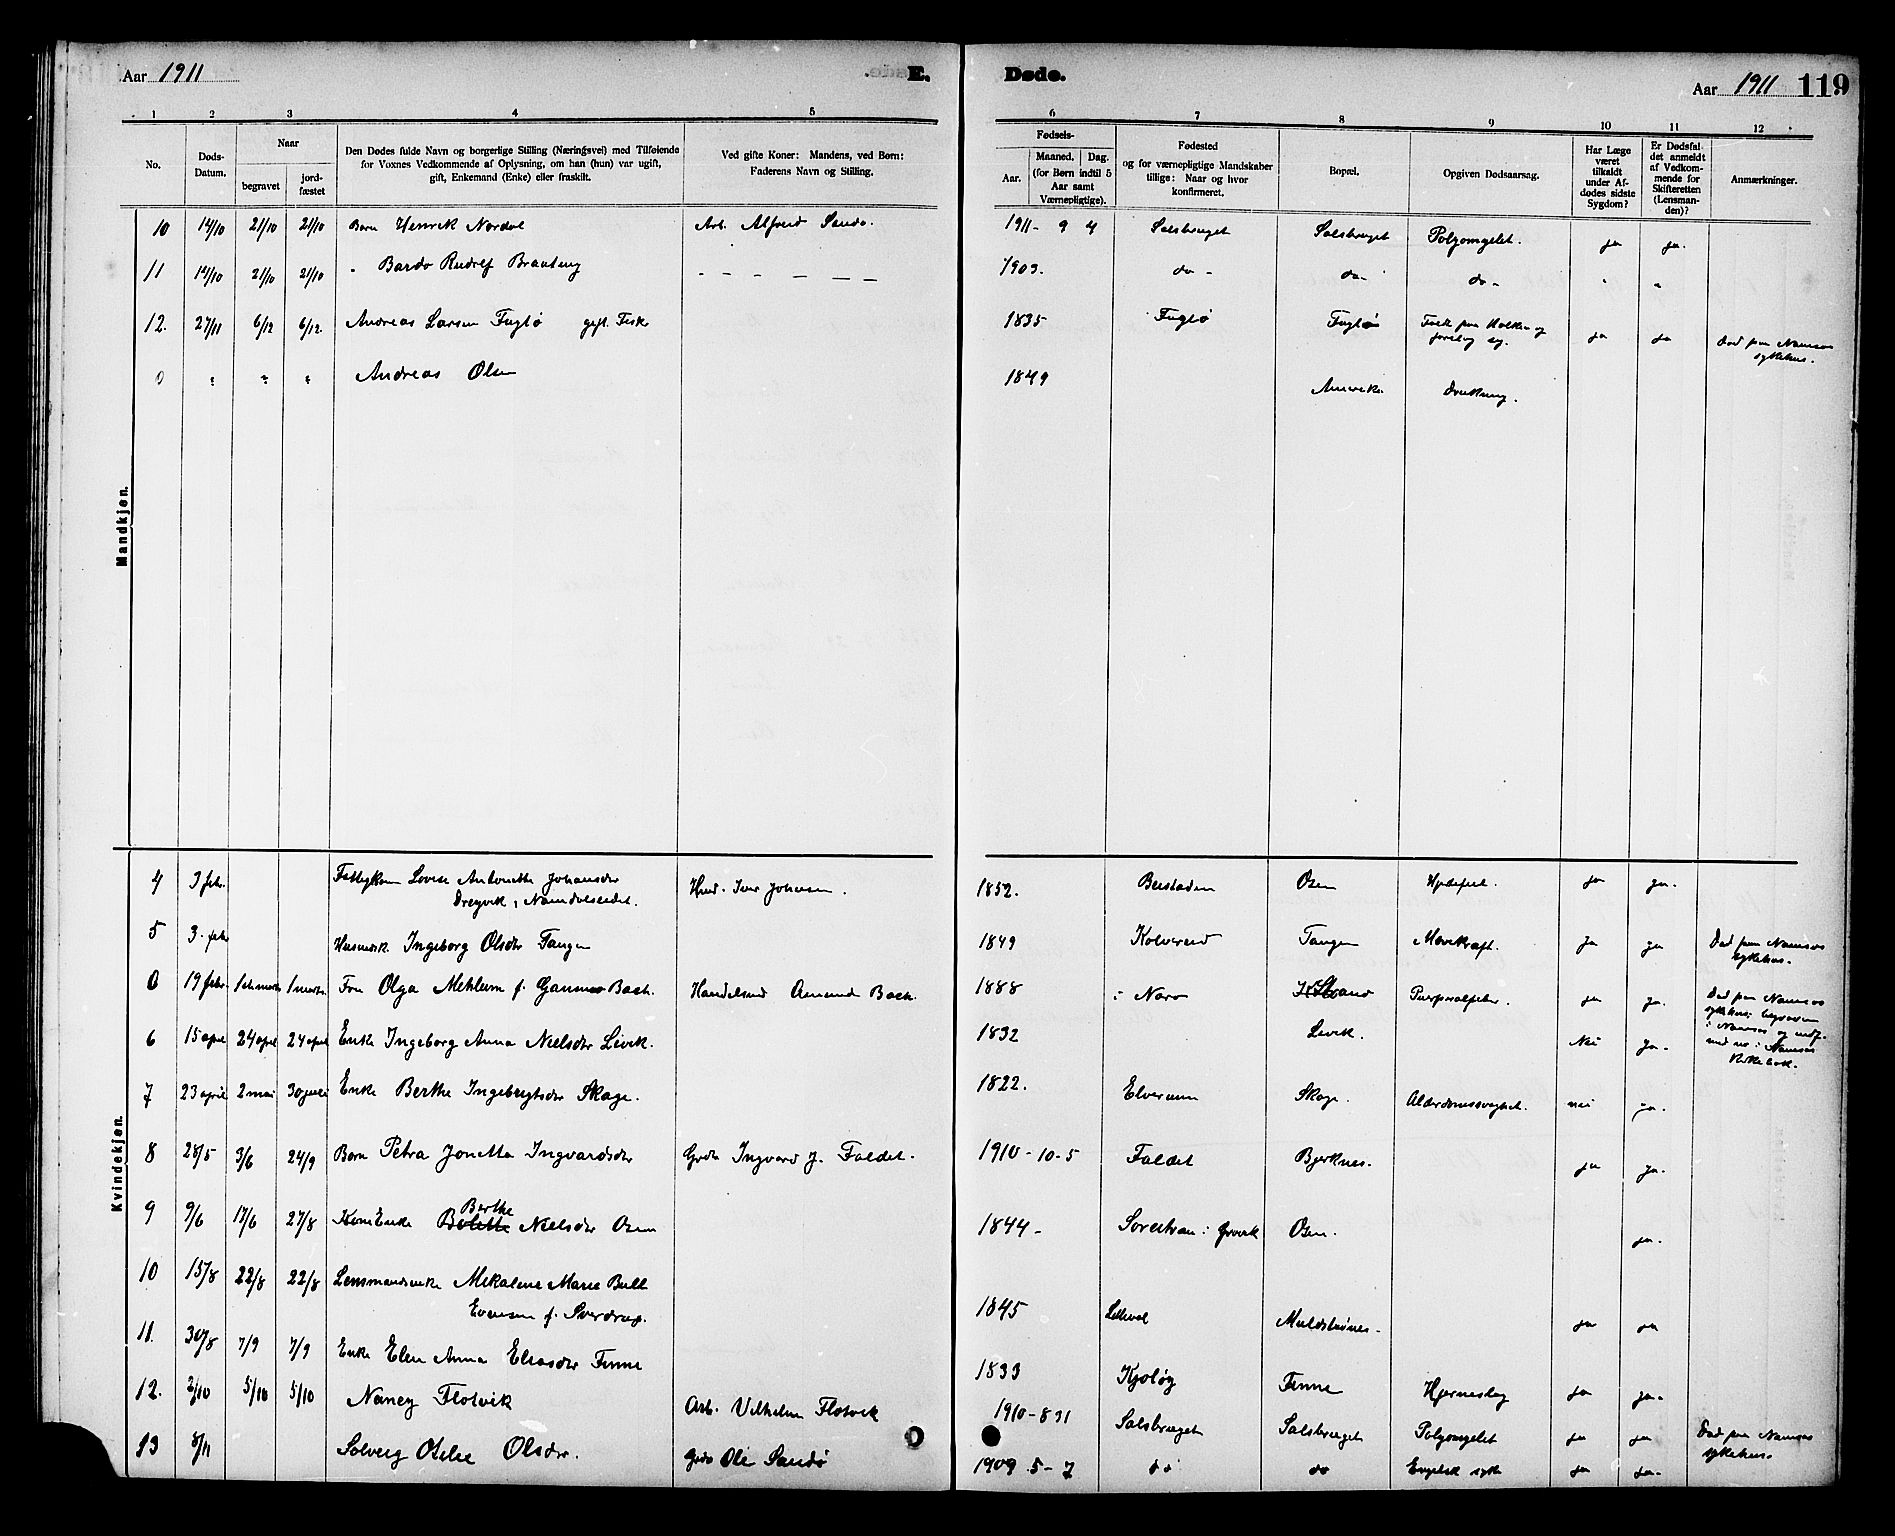 Aar 1911
E.
Døde.
Aar 1911
119
1 2 3 4 5 6 7 8 9 10 11 12
No.
Døds-
Datum.
Naar
begravet
jord-
fæstet
Den Dødes fulde Navn og borgerlige Stilling (Næringsvei) med Tilføiende
for Voxnes Vedkommende af Oplysning, om han (hun) var ugift,
gift, Enkemand (Enke) eller fraskilt.
Ved gifte Koner: Mandens, ved Børn:
Faderens Navn og Stilling.
Fødsels-
Aar.
Maaned. Dag.
(for Børn indtil 5
Aar samt
Værnepligtige).
Fødested
og for værnepligtige Mandskaber
tillige: Naar og hvor
konfirmeret.
Bopæl.
Opgiven Dødsaarsag.
Har Læge
været
tilkaldt
under Af-
dødes sidste
Sygdom?
Er Dødsfal-
det anmeldt
af Vedkom-
mende for
Skifteretten
(Lensman-
den)?
Anmærkninger.
Mandkjøn.
10 14/10 21/10 21/10 Barn Henrik Nordal Arb. Alfred Sando. 1911- 9 4 Salsbruget Salsbruget ja ja.
11 14/10 21/10 21/10 " Bardo Rudolf 1903. do - do - do -
12. 27/11 6/12 6/12. Andreas Larsen Fuglø gift. Fisk 1835 Fuglø Fuglø ja ja Død paa Namsos
sykehus.
0 " " " Andreas Olsen 1849 Drukning.
Kvindekjøn.
4 3 feb. Lovise Antonette Johansdr
Namdalseidet. Iver Johnsen. 1852. Beistaden Osen Hjertefeil. ja ja.
5 3. feb Ingeborg Olsdr Tangen 1849 Kolvereid Tangen Mavekræft. ja ja Død paa Namsos
sykehus.
0 19 febr. 1ste marts 1 marts. Fru Olga Mehlum f. Bach. Handelsmd Amund Bach. 1888 i Nærø Strand ja ja. Død paa Namsos
sykehus, begraven
i Namsos og indf.
med no i Namsos
Kirkebok.
6 15 april 24 april 24 april Enke Ingeborg Anna Nielsdr Levik. 1832 Levik. Nei Ja.
7 23 april 2 mai 30 juli Enke Berthe Ingebrigtsdr Skage. 1822. Elverum Skage. Alderdomssvaghet. nei ja.
8 28/5 3/6 24/9 Barn Petra Jonetta Ingvardsdr Gbdr Ingvard J. Faldet. 1910-10-5 Faldet Bjerknes. ja ja.
9 9/6 17/6 27/8 Enke Berthe Nielsdr Osen 1844 - Osen. ja.
10 15/8 22/8 22/8 Lensmandsenke Mekaline Marie Bull
Evensen f. Sverdrup. 1845 ja ja
11. 30/8 7/9 7/9 Enke Elen Anna Eliasdr Finne 1833 Finne Hjerneslag ja ja.
12. 2/10 5/10 5/10 Nancy Flotvik Arb. Vilhelm Flotvik 1910-8 31 Salsbruget Salsbruget ja ja Død paa Namsos
sykehus.
13 8/11 Solveig Otelie Olsdr. Gbdr Ole Sandø 1909 5-7 do do Engelsk syke ja ja.